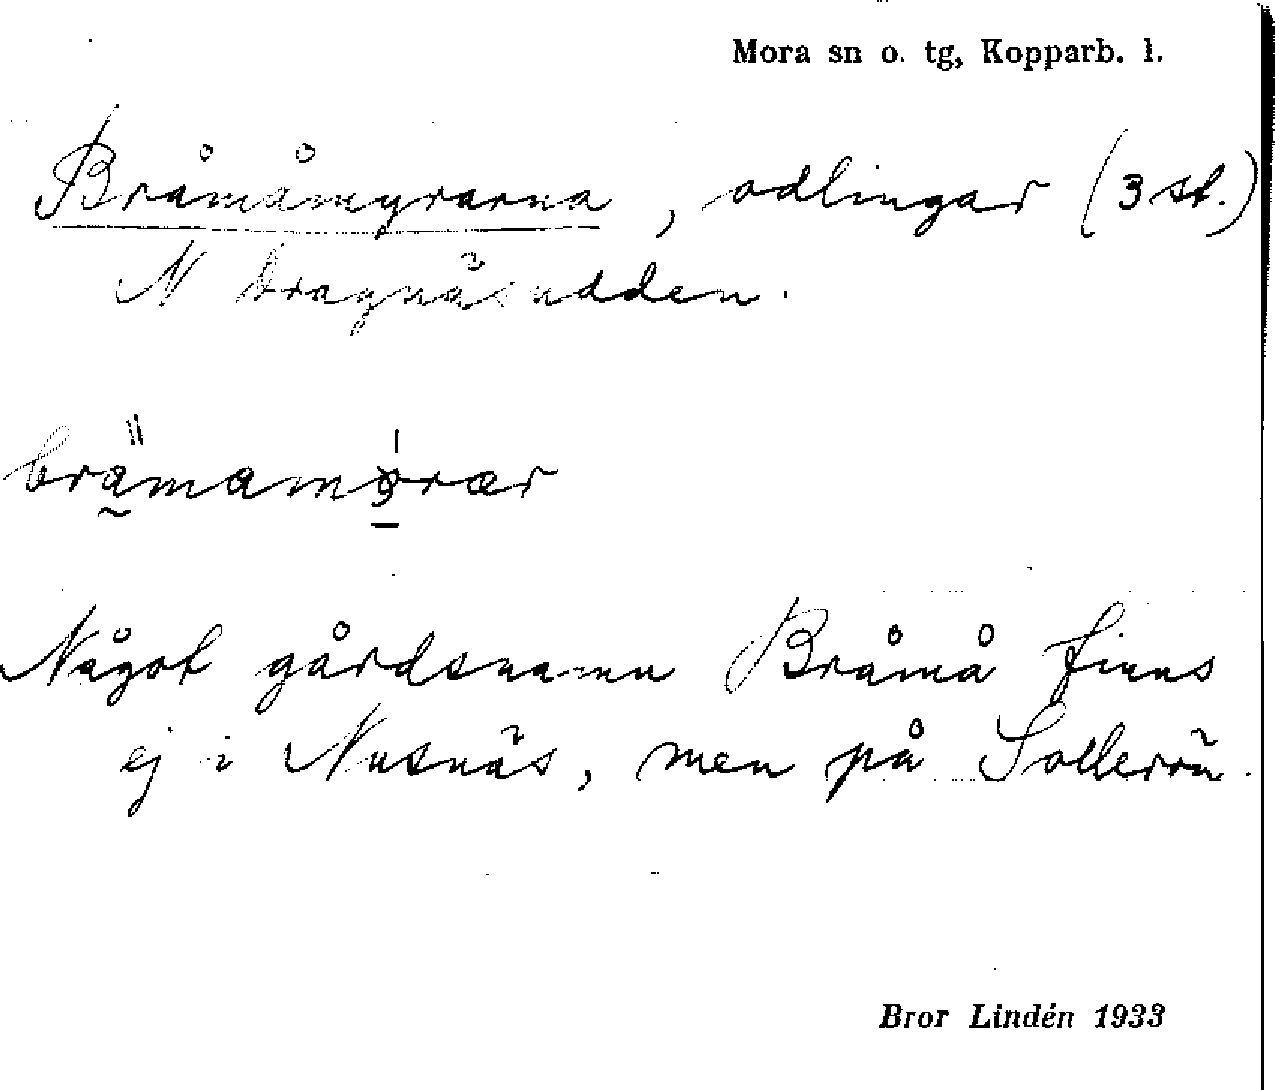 Mora sn o. tg, Kopparb. l.
Bråmåmyrarna, odlingar (3 st.)
N Dragnäsudden.
Något gårdsnamn Bråmå finns
ej i Nusnäs, men på Sollerön.
Bror Lindén 1933